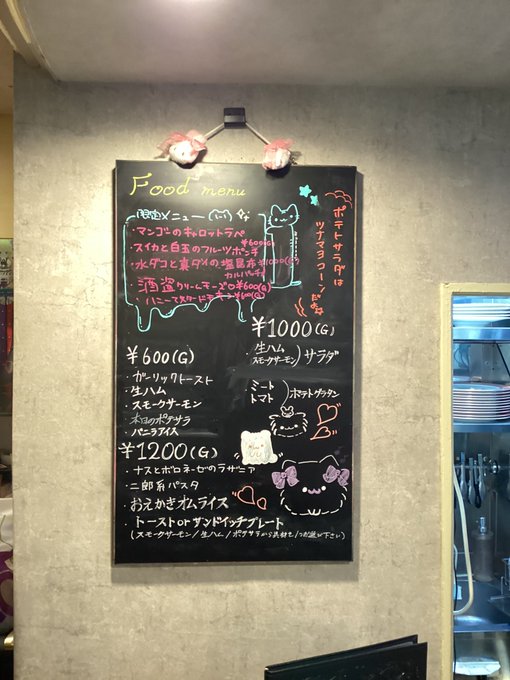 Food menu
限定メニュー
・マンゴーのキャロットラペ
¥600(G)
・スイカと白玉のフルーツポンチ
・水ダコと真ダイの塩昆布 ¥1000(G)
カルパッチョ
・酒盗クリームチーズ ¥600(G)
・ハニーマスタードチキン ¥600(G)
ポテトサラダは
ツナマヨコーンだよ
¥1000(G)
生ハム
スモークサーモン
サラダ
ミート
トマト
ポテトグラタン
¥600(G)
・ガーリックトースト
・生ハム
・スモークサーモン
・本日のポテサラ
・バニラアイス
¥1200(G)
・ナスとボロネーゼのラザニア
・二郎系パスタ
・おえかきオムライス
・トーストorサンドイッチプレート
(スモークサーモン/生ハム/ポテサラから具材を1つお選び下さい)